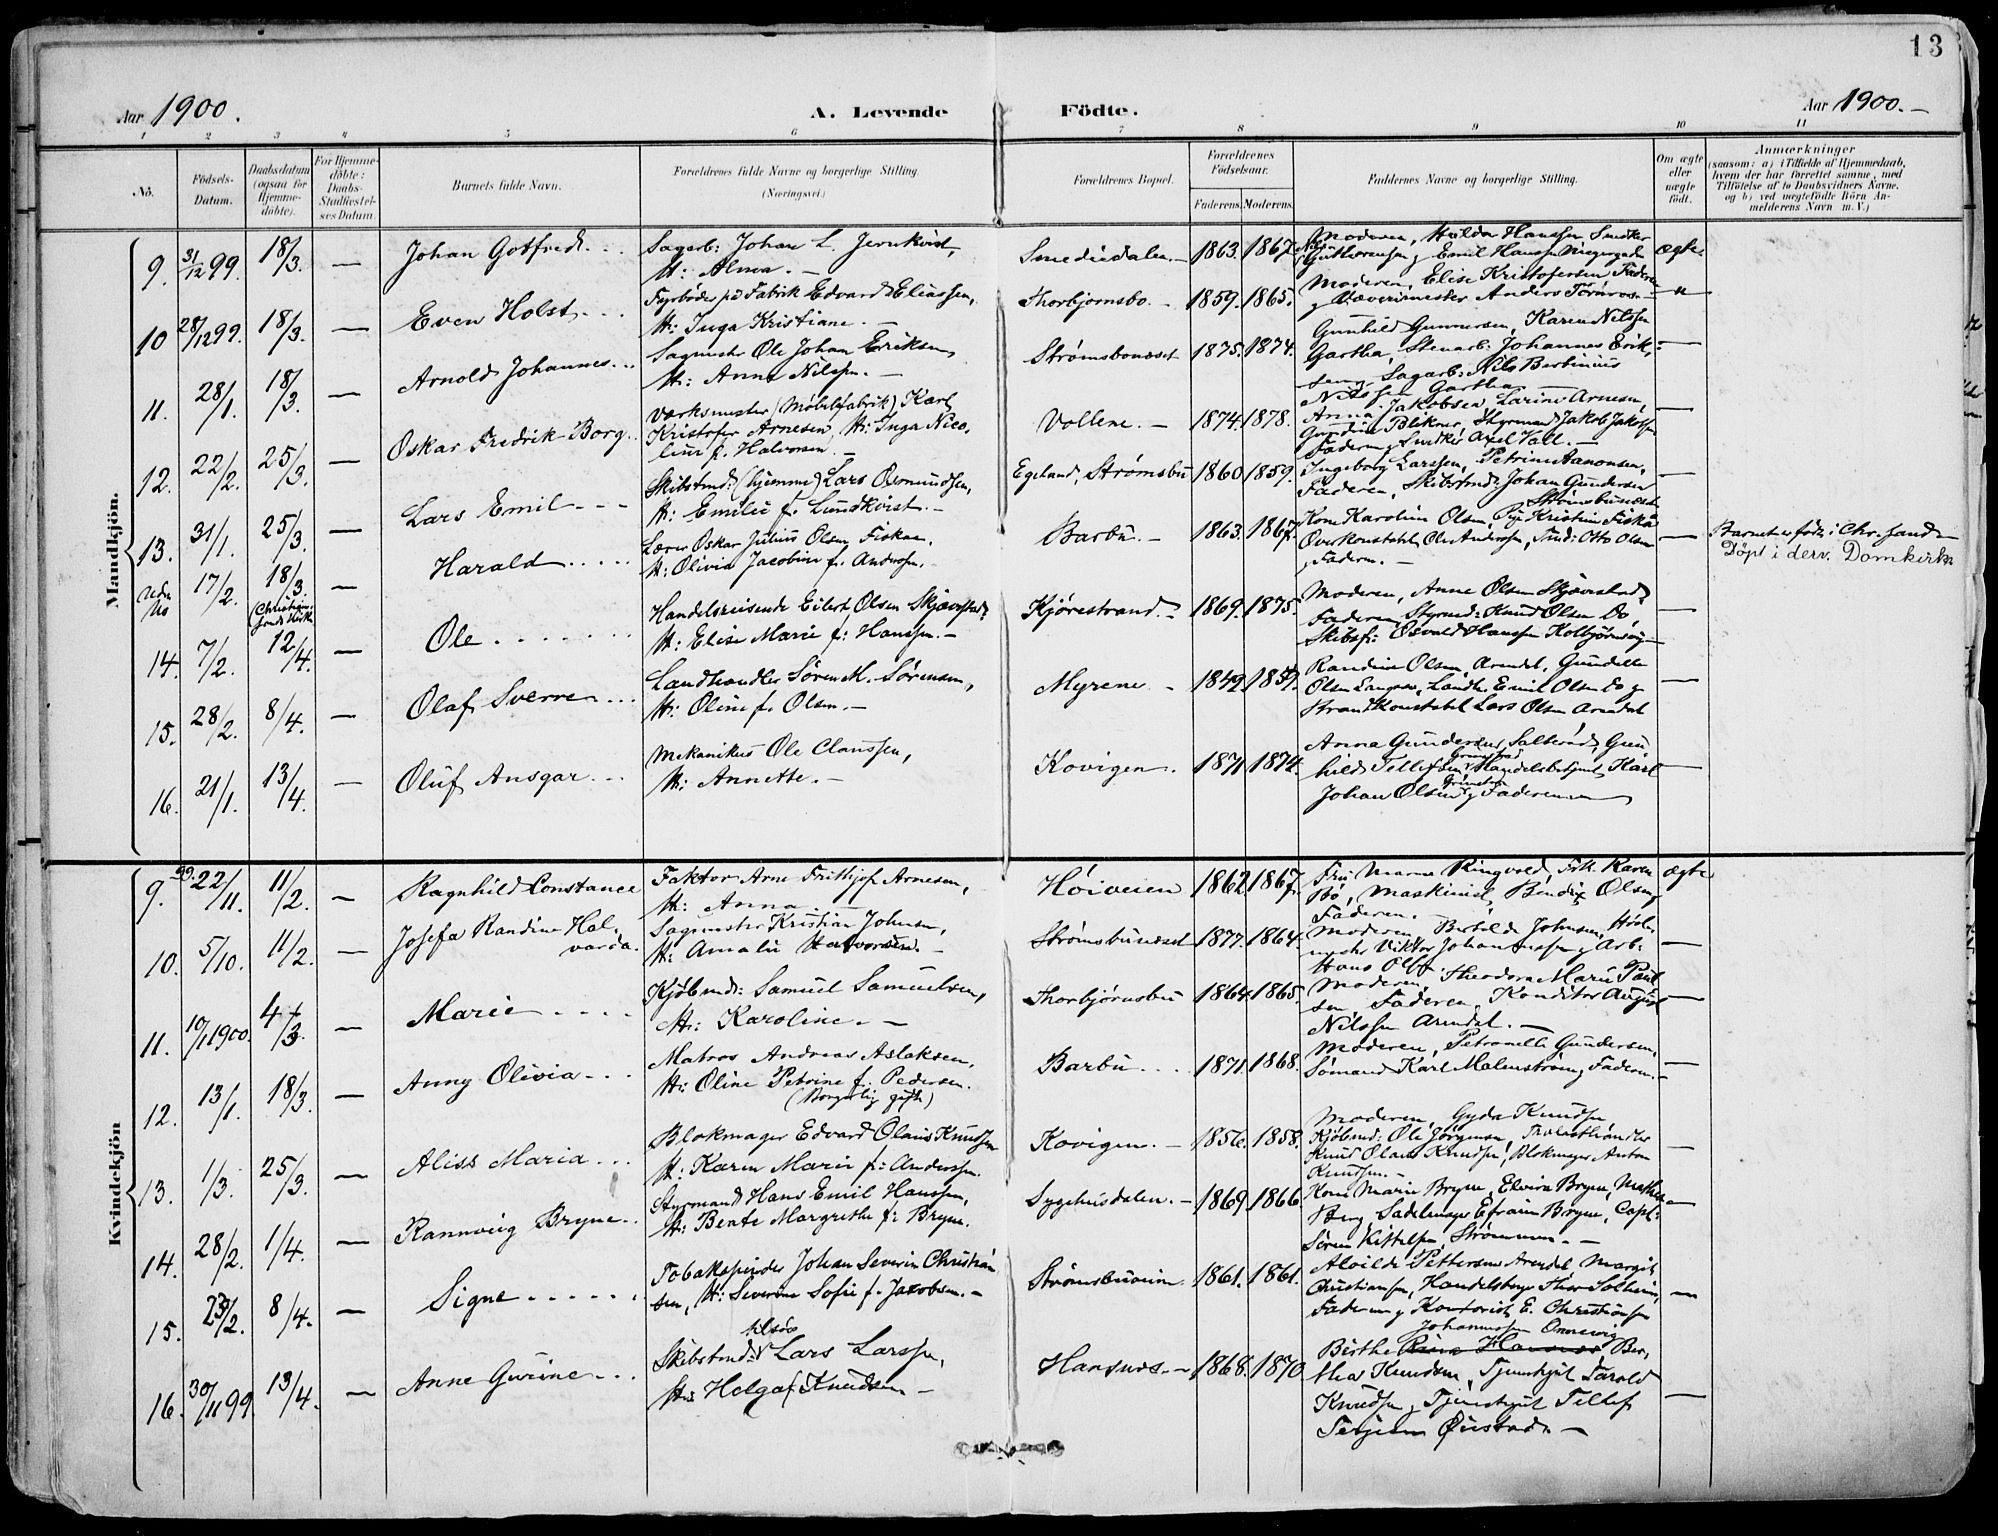 13
Aar 1900.
A. Levende Födte.
Aar 1900.
1 2 3 4 5 6 7 8 9 10 11
No.
Födsels-
Datum.
Daabsdatum
(ogsaa for
Hjemme-
döbte).
For Hjemme-
döbte:
Daabs-
Stadfæstel-
ses Datum.
Barnets fulde Navn.
Forældrenes fulde Navne og borgerlige Stilling.
(Næringsvei.)
Forældrenes Bopæl.
Forældrenes
Födselsaar.
Faderens. Moderens.
Faddernes Navne og borgerlige Stilling.
Om ægte
eller
uægte
født.
Anmærkninger
(saasom: a) i Tilfælde af Hjemmedaab,
hvem der har forrettet samme, med
Tilföielse af to Daabsvidners Navne,
og b) ved uægtefödte Börn An-
melderens Navn m. V.)
Mandkjön.
9. 31/12 99. 18/3. — Johan Gotfred
Sagarb: Johan L. Jernkvist,
H: Alma. —
Smededalen. — 1863. 1867.
Moderen, Hulda Hanssen
Emil Hanssen
ægte
10 28/12 99. 18/3. — Even Holst
Fyrbøder på Fabrik Edvard Eliassen,
H: Inga Kristiane. —
Thorbjørnsbo. — 1859. 1865.
Moderen, Elise Kristofersen Faderen
Anders
"
11. 28/1. 18/3. — Arnold Johannes
Sagmester Ole Johan Eriksen
H: Anna Nilssen. —
Strømsbunæset 1875. 1874.
Gunhild Gunnersen, Karen Nilssen
Gartha, Stenarb: Johannes Erik-
sen, Sagarb: Nils Berbinius
Nilssen Gartha.
—
12. 22/2. 25/3. — Oskar Fredrik Borg
Værksmester (Møbelfabrik) Karl
Kristofer Arnesen, H: Inga Nico-
line f. Halvorsen. —
Vollene. — 1874. 1878.
Anna Jakobsen Larine Arnesen,
Styrmand Jakob Jakobsen
Faderen, Axel Vall. —
—
13. 31/1. 25/3. — Lars Emil
Skibstmd: (hjemme) Lars Osmundsen,
H: Emilie f. Lundkvist. —
Egeland, Strømsbu 1860 1859.
Ingeborg Larssen, Petrine Aanonsen,
Faderen, Skibstmd: Johan Gundersen
Strømsbunæset
—
17/2. 18/3. (Christian-
sands Kirke — Harald
Lærer Oskar Julius Olsen Fiskaa,
H: Olivia Jacobine f. Andersen. —
Barbu. — 1863. 1867.
Kone Karoline Olsen, Pige Kristine Fiskaa
Overkonstabel Ole Andersen, Stud: Otto Olsen
Faderen. —
—
Barnet er født i Chr.sand
Døpt i derv. Domkirke
14. 7/2. 12/4. — Ole
Handelsreisende Eilert Olsen Skjævestad,
H: Elise Marie f: Hanssen. —
Kjørestrand. 1869. 1875.
Moderen, Anne Olsen Skjævestad,
Faderen, Styrmd: Knud Olsen Do,
Skibsf: Osvald Hanssen Kolbjørnsvig —
—
15. 28/2. 8/4. — Olaf Sverre
Landhandler Søren M. Sørensen,
H: Oline f. Olsen. —
Myrene — 1849. 1859.
Randine Olsen, Arendal, Gundelle
Olsen Langsæ, Landh: Emil Olsen Do
Konstabel Lars Olsen Arendal
—
16. 21/1. 13/4. — Oluf Ansgar
Mekanikus Ole Claussen,
H: Annette. —
Kovigen. 1871 1874.
Anna Gundersen, Salterød, Gun-
hild Tellefsen Grimstad, Handelsbetjent Karl
Johan Olsen Grimstad, Faderen
—
Kvindekjön
9. 99. 22/11. 11/2. — Ragnhild Constance
Faktor Arne Frithjof Arnesen,
H: Anna. —
Høiveien 1862 1867.
Fru Marna Ringvold, Frk. Karen
Bø, Maskinist Bendix Olsen,
Faderen. —
ægte
10. 5/10. 11/2. — Josefa Randine Hal-
varda.
Sagmester Kristian Johnsen,
H: Amalie Halvorsen. —
Strømsbunæset 1877. 1864.
Moderen, Berhilde Johnsen,
Viktor Johannessen, Arb:
Hans
—
11. 10/1 1900. 4/3. — Marie
Kjøbmd: Samuel Samuelsen,
H: Karoline. —
Thorbjørnsbu 1864. 1865.
Moderen, Theodora Marie Paul-
sen, Faderen, Konditor August
Nilssen Arendal. —
—
12. 13/1. 18/3. — Anny Olivia
Matros Andreas Aslaksen,
H: Oline Petrine f. Pedersen.
(Borgerlig gift)
Barbu 1871. 1868.
Moderen, Petronelle Gundersen,
Sømand Karl Malmstrøm, Faderen. —
—
13. 1/3. 25/3. — Aliss Maria
Blokmager Edvard Olaus Knudsen
H: Karen Marie f: Anderssen.
Kovigen. — 1856. 1858.
Moderen, Gyda Knudsen
Kjøbmd: Ole Jørgensen,
Knud Olaus Knudsen, Blokmager Anton
Knudsen. —
—
14. 28/2. 1/4. — Rannveig Bryne
Styrmand Hans Emil Hanssen,
H: Bente Margrethe f: Bryne.
Sygehusdalen. — 1869. 1866
Kone Marie Bryne, Elvira Bryne, Mathea
Berg, Sadelmager Efraim Bryne, Capt:
Søren Kittelsen, Strømmen. —
—
15. 23/2. 8/4. — Signe
Tobakspinder Johan Severin Christian-
sen, H: Severine Sofie f. Jacobsen. —
1861. 1861.
Alvilde Pettersen Arendal Margit
Christiansen, Handelsborger Thor Solheim,
Faderen, Kontorist E. Christiansen
—
16. 30/11 99. 13/4. — Anne Gurine
Skibstmd: tilsøs Lars Larssen,
H: Helga f. Knudsen —
Hansnæs. — 1868. 1870.
Johannessen Omrevig
Birthe Ber-
thea Knudsen, Tjenestgut Tarald
Knudsen, Tjenestgut Tellef
Terjesen Øiestad. —
—